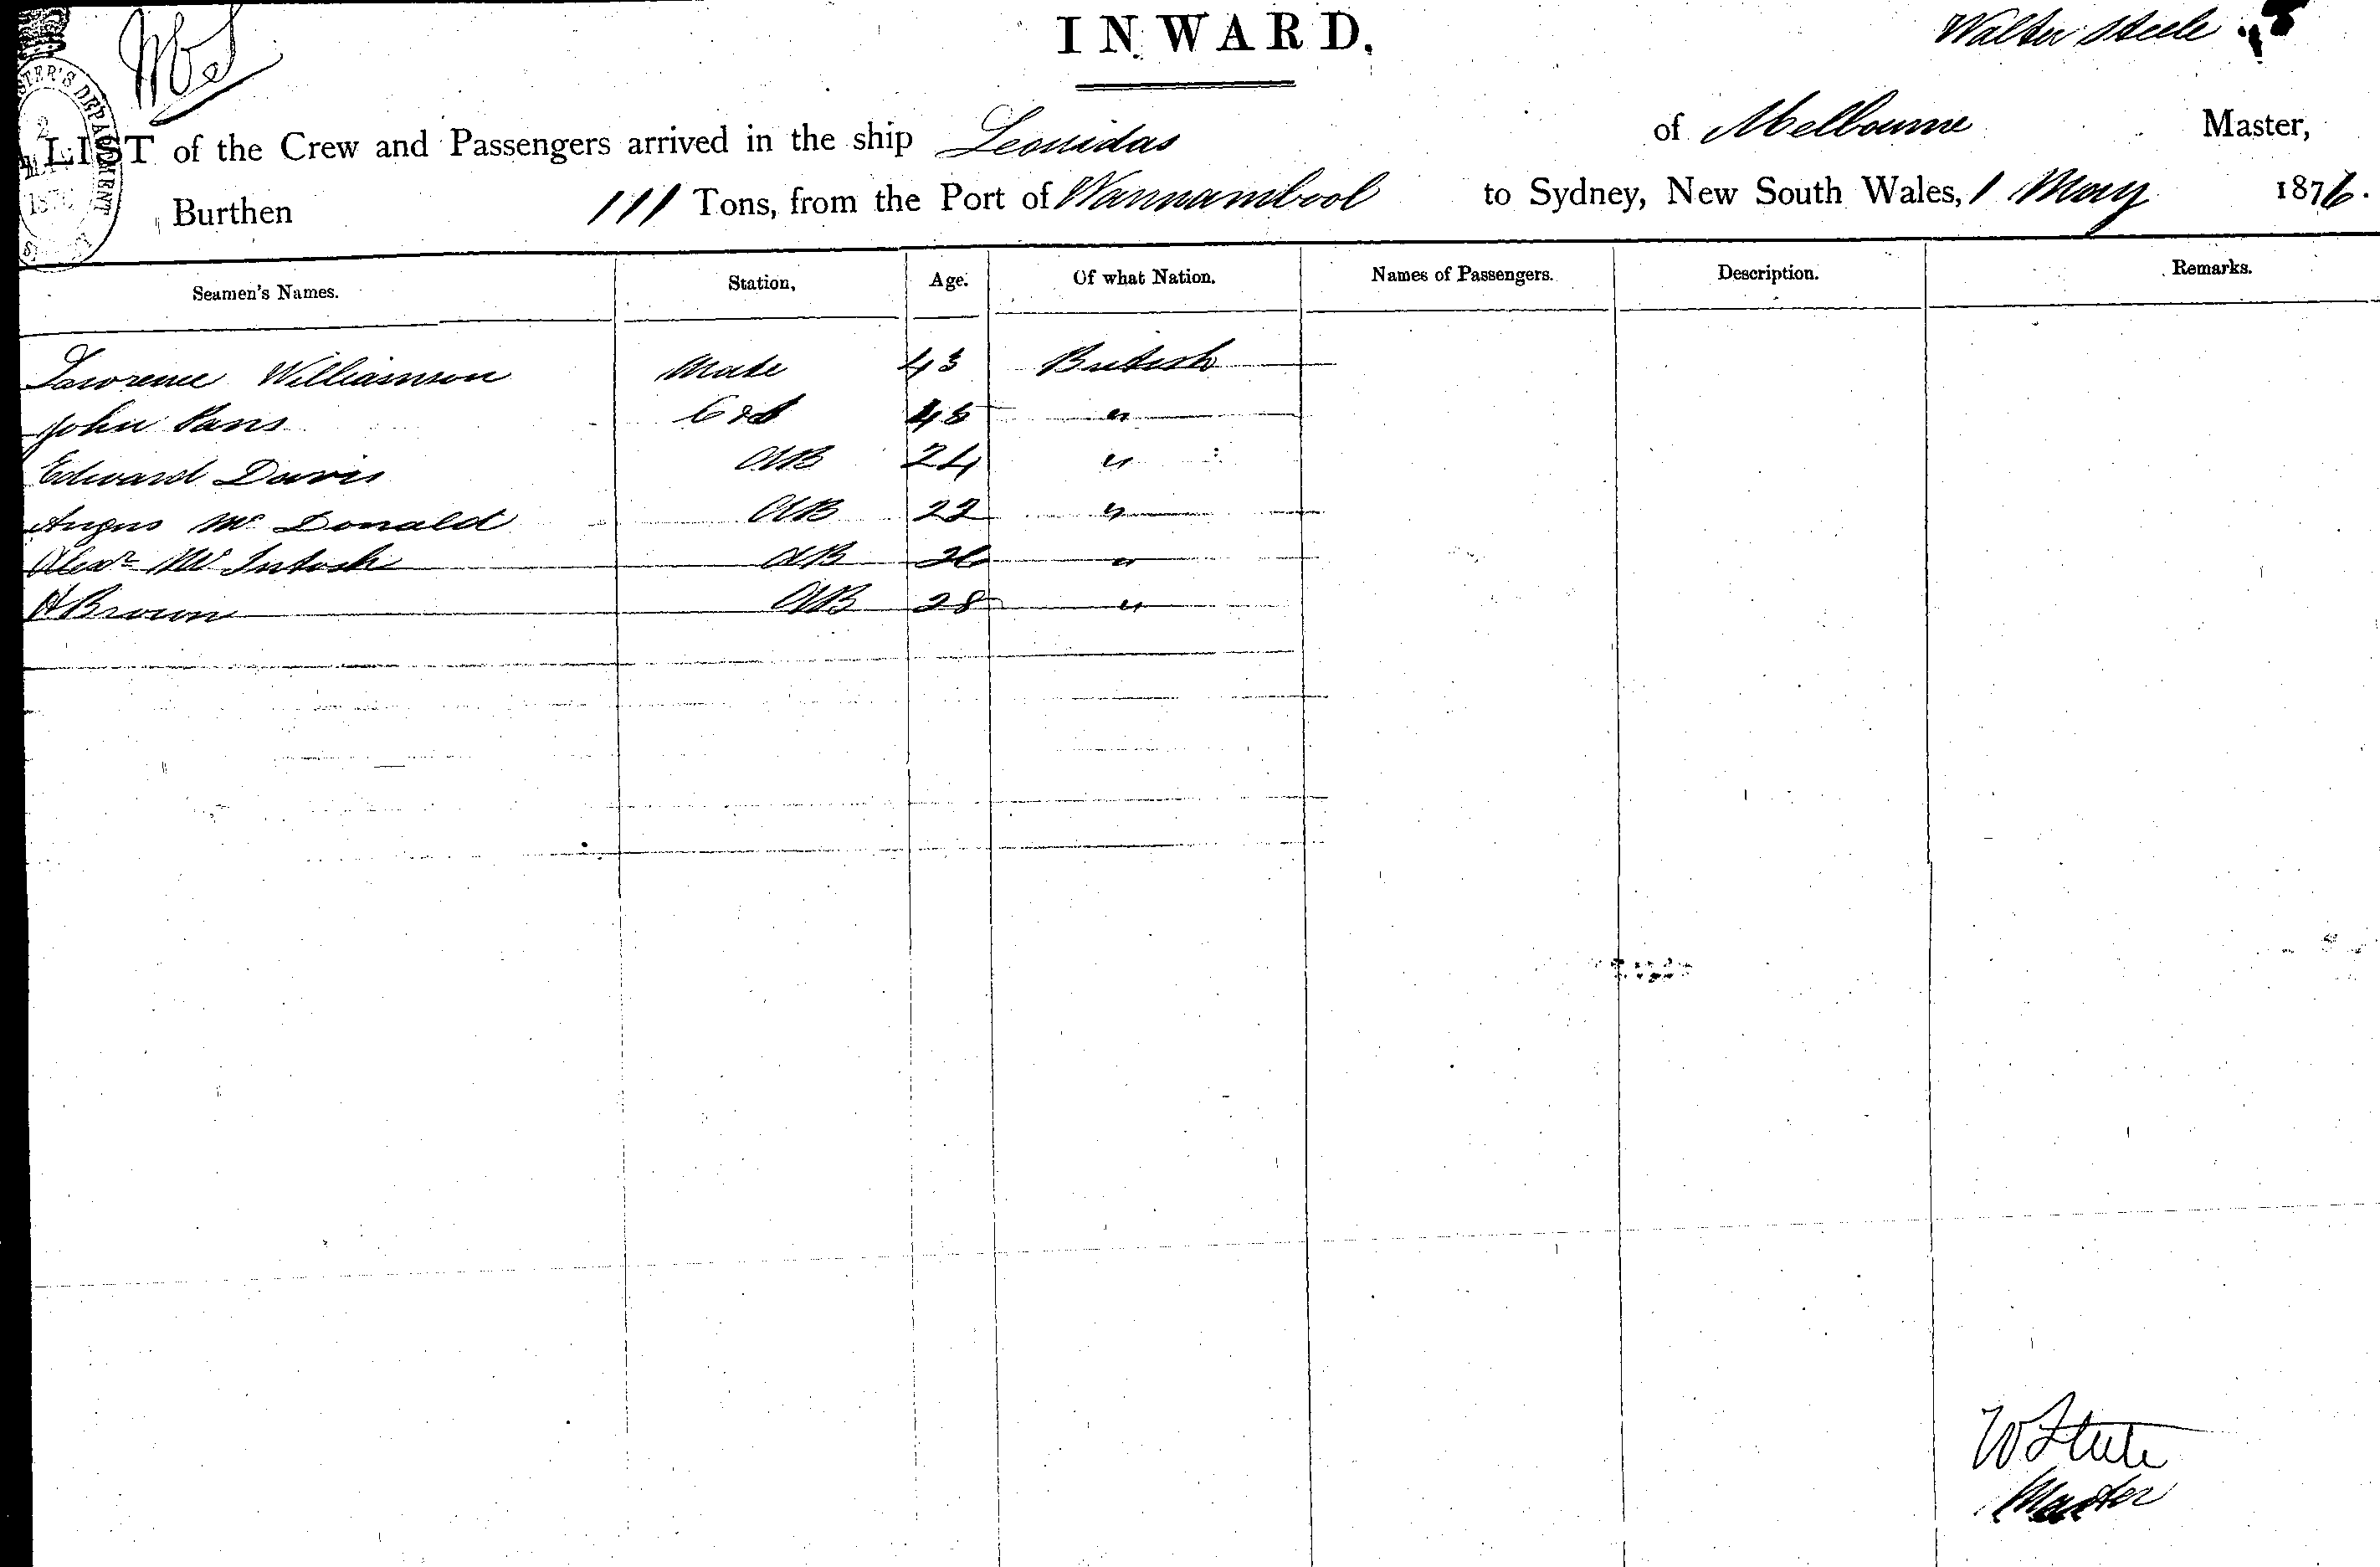 INWARD.
Walter Steele
LIST of the Crew and Passengers arrived in the ship Leonidas of Melbourne Master,
Burthen 111 Tons, from the Port of Warrnambool to Sydney, New South Wales, 1 May 1876.
Seamen's Names. Station, Age. Of what Nation. Names of Passengers. Description. Remarks.
Lawrence Williamson Mate 43 British
John "
Edward Davis AB 24 "
Angus Mc Donald AB 22 "
Alexr Mc Intosh AB 26 "
H Brown AB 28 "
W Steele
Master